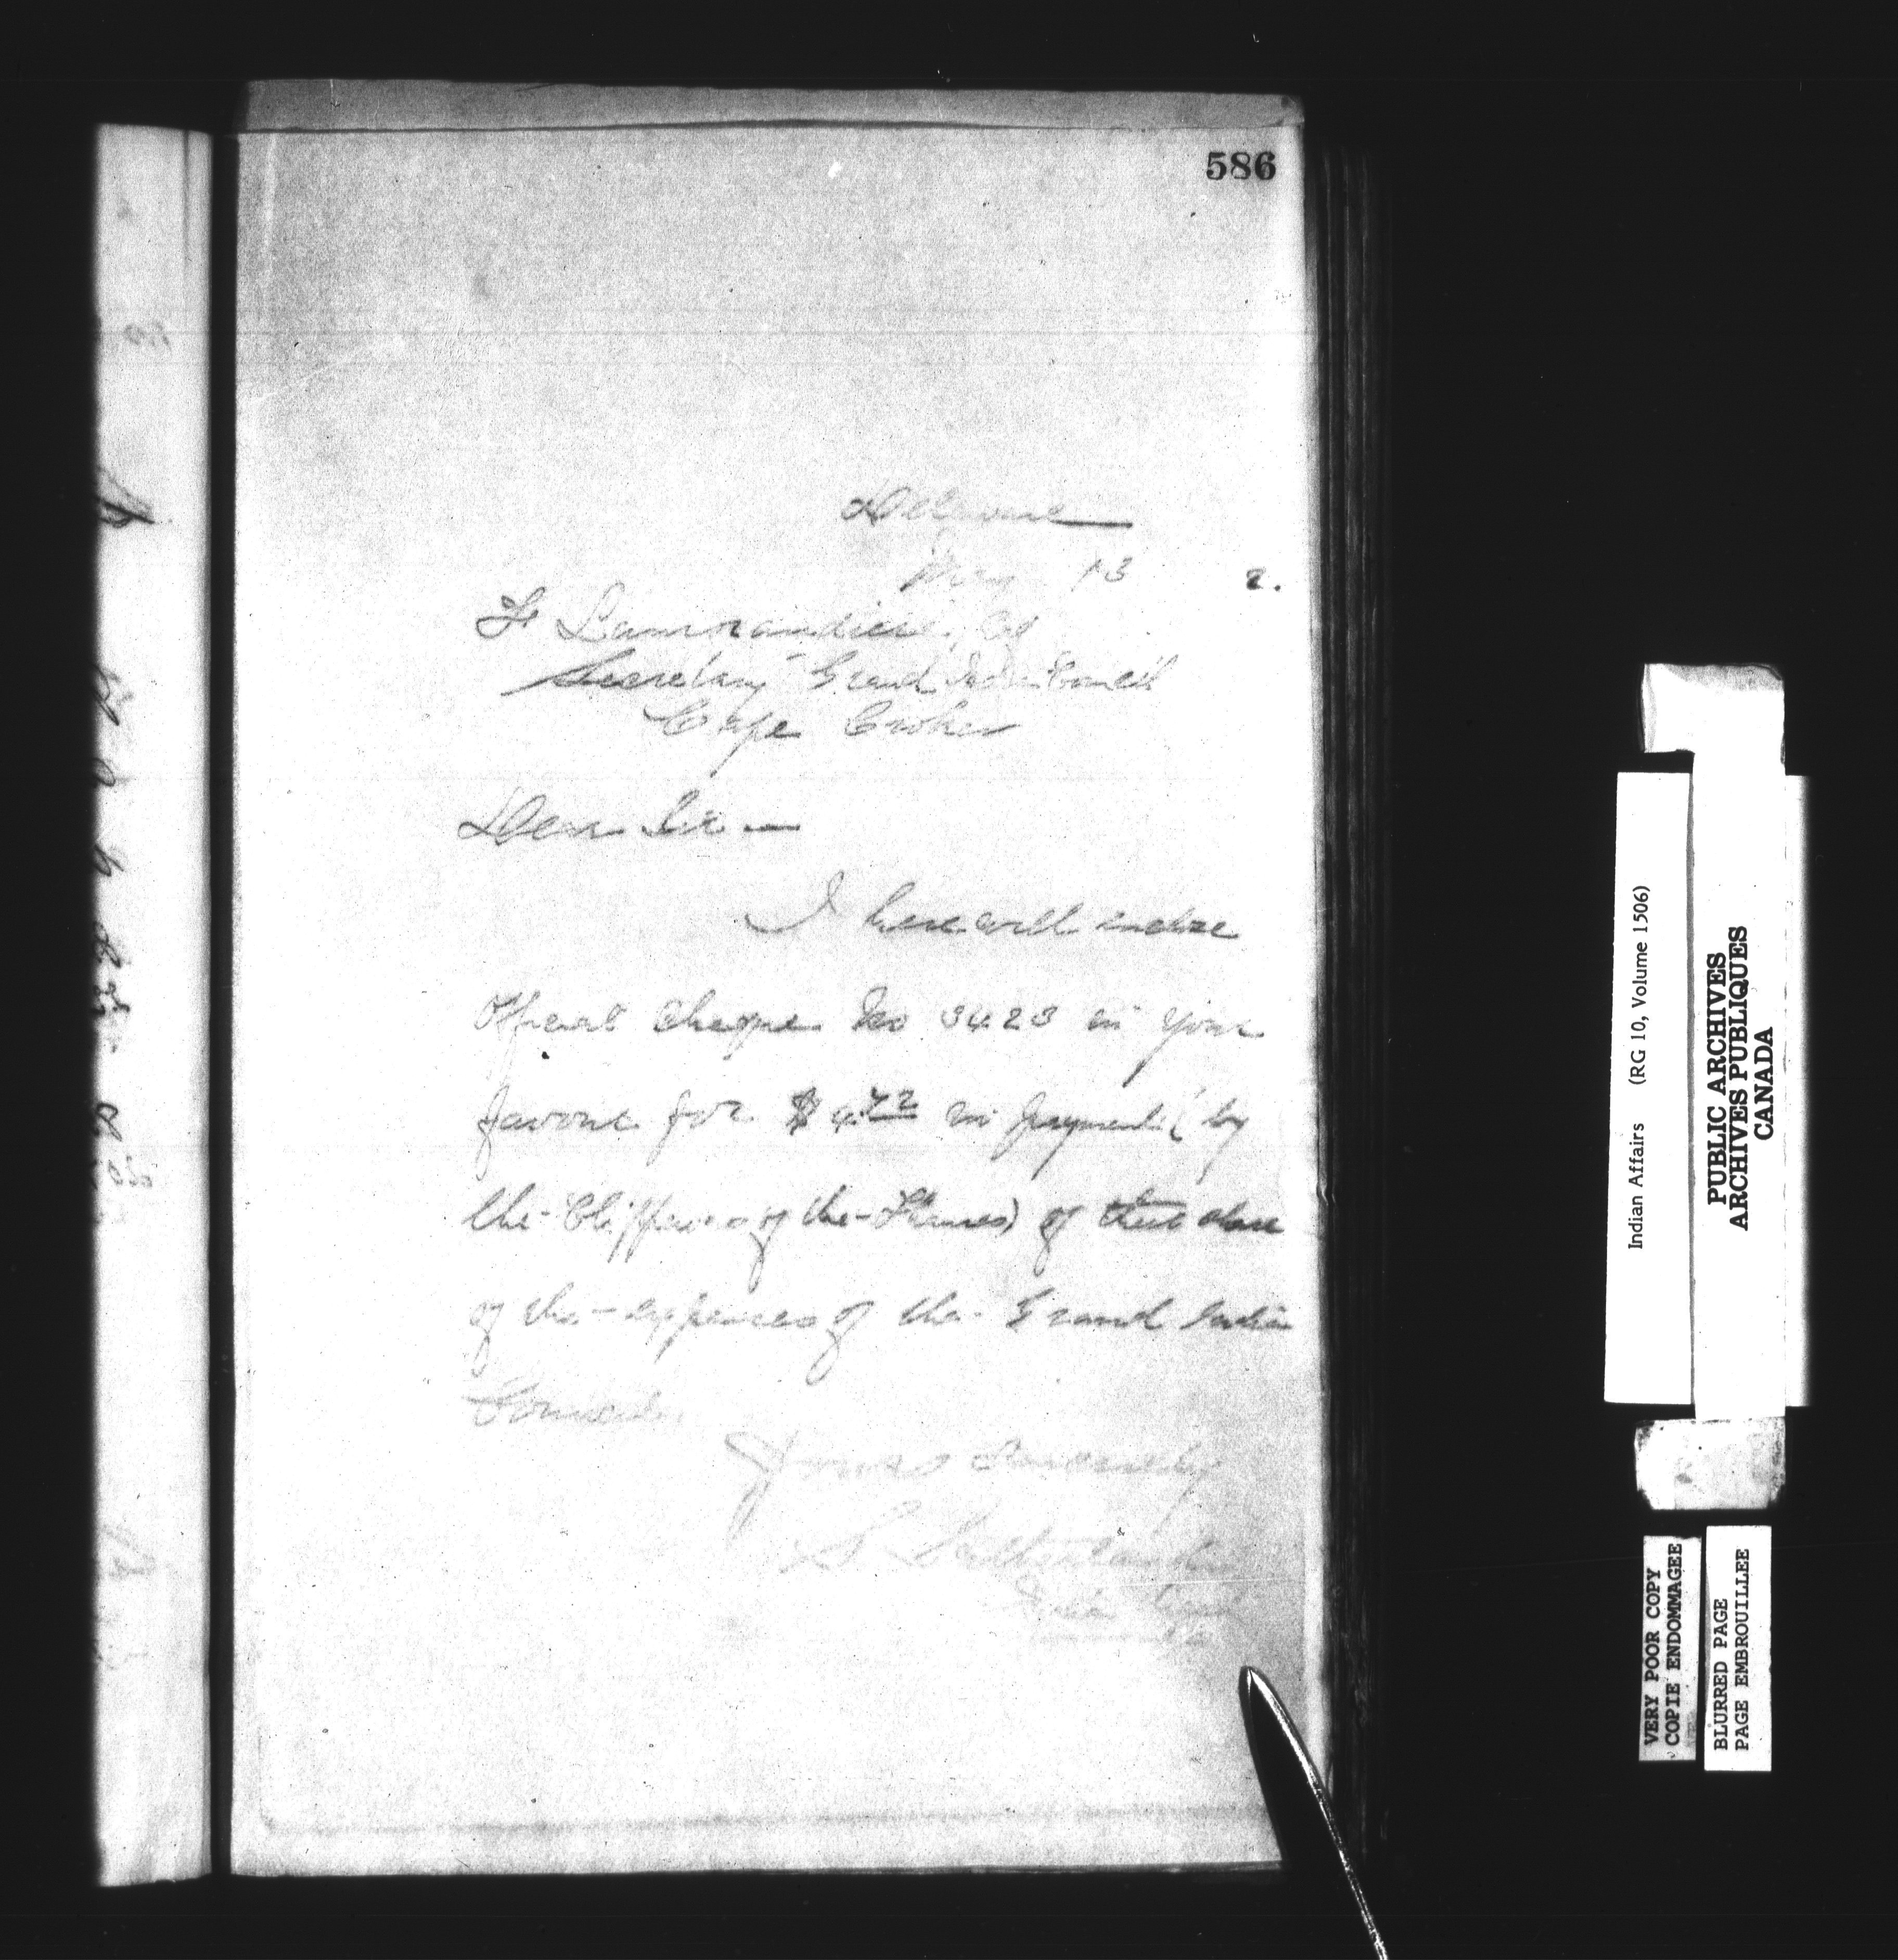 586
Delaware
May 13 2.
F Lamorandiere, Esq
Secretary Grand Indian Council
Cape Croker
Dear Sir —
I herewith enclose
Official cheque No 3423 in your
favour for $4.72 in payment (by
the Chippewas of the Thames) of their share
of the expenses of the Grand Indian
Council.
Yours sincerely
S Sutherland
Indian Affairs (RG 10, Volume 1506)
PUBLIC ARCHIVES
ARCHIVES PUBLIQUES
CANADA
VERY POOR COPY
COPIE ENDOMMAGEE
BLURRED PAGE
PAGE EMBROUILLEE